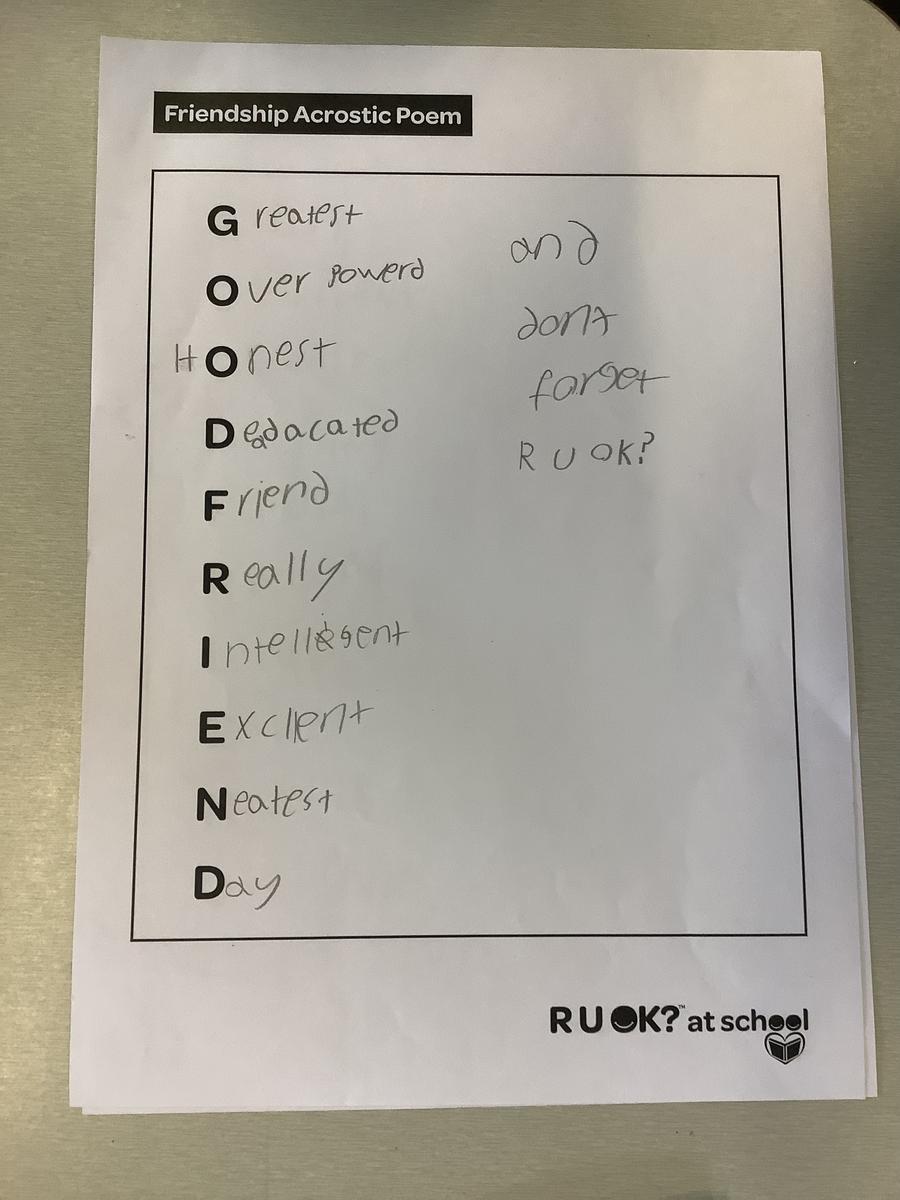 Friendship Acrostic Poem
Greatest
Over Powerd
HOnest
Dedacated
Friend
Really
Intellegent
Exclient
Neatest
Day
and
dont
forget
R U OK?
R U OK?™ at school